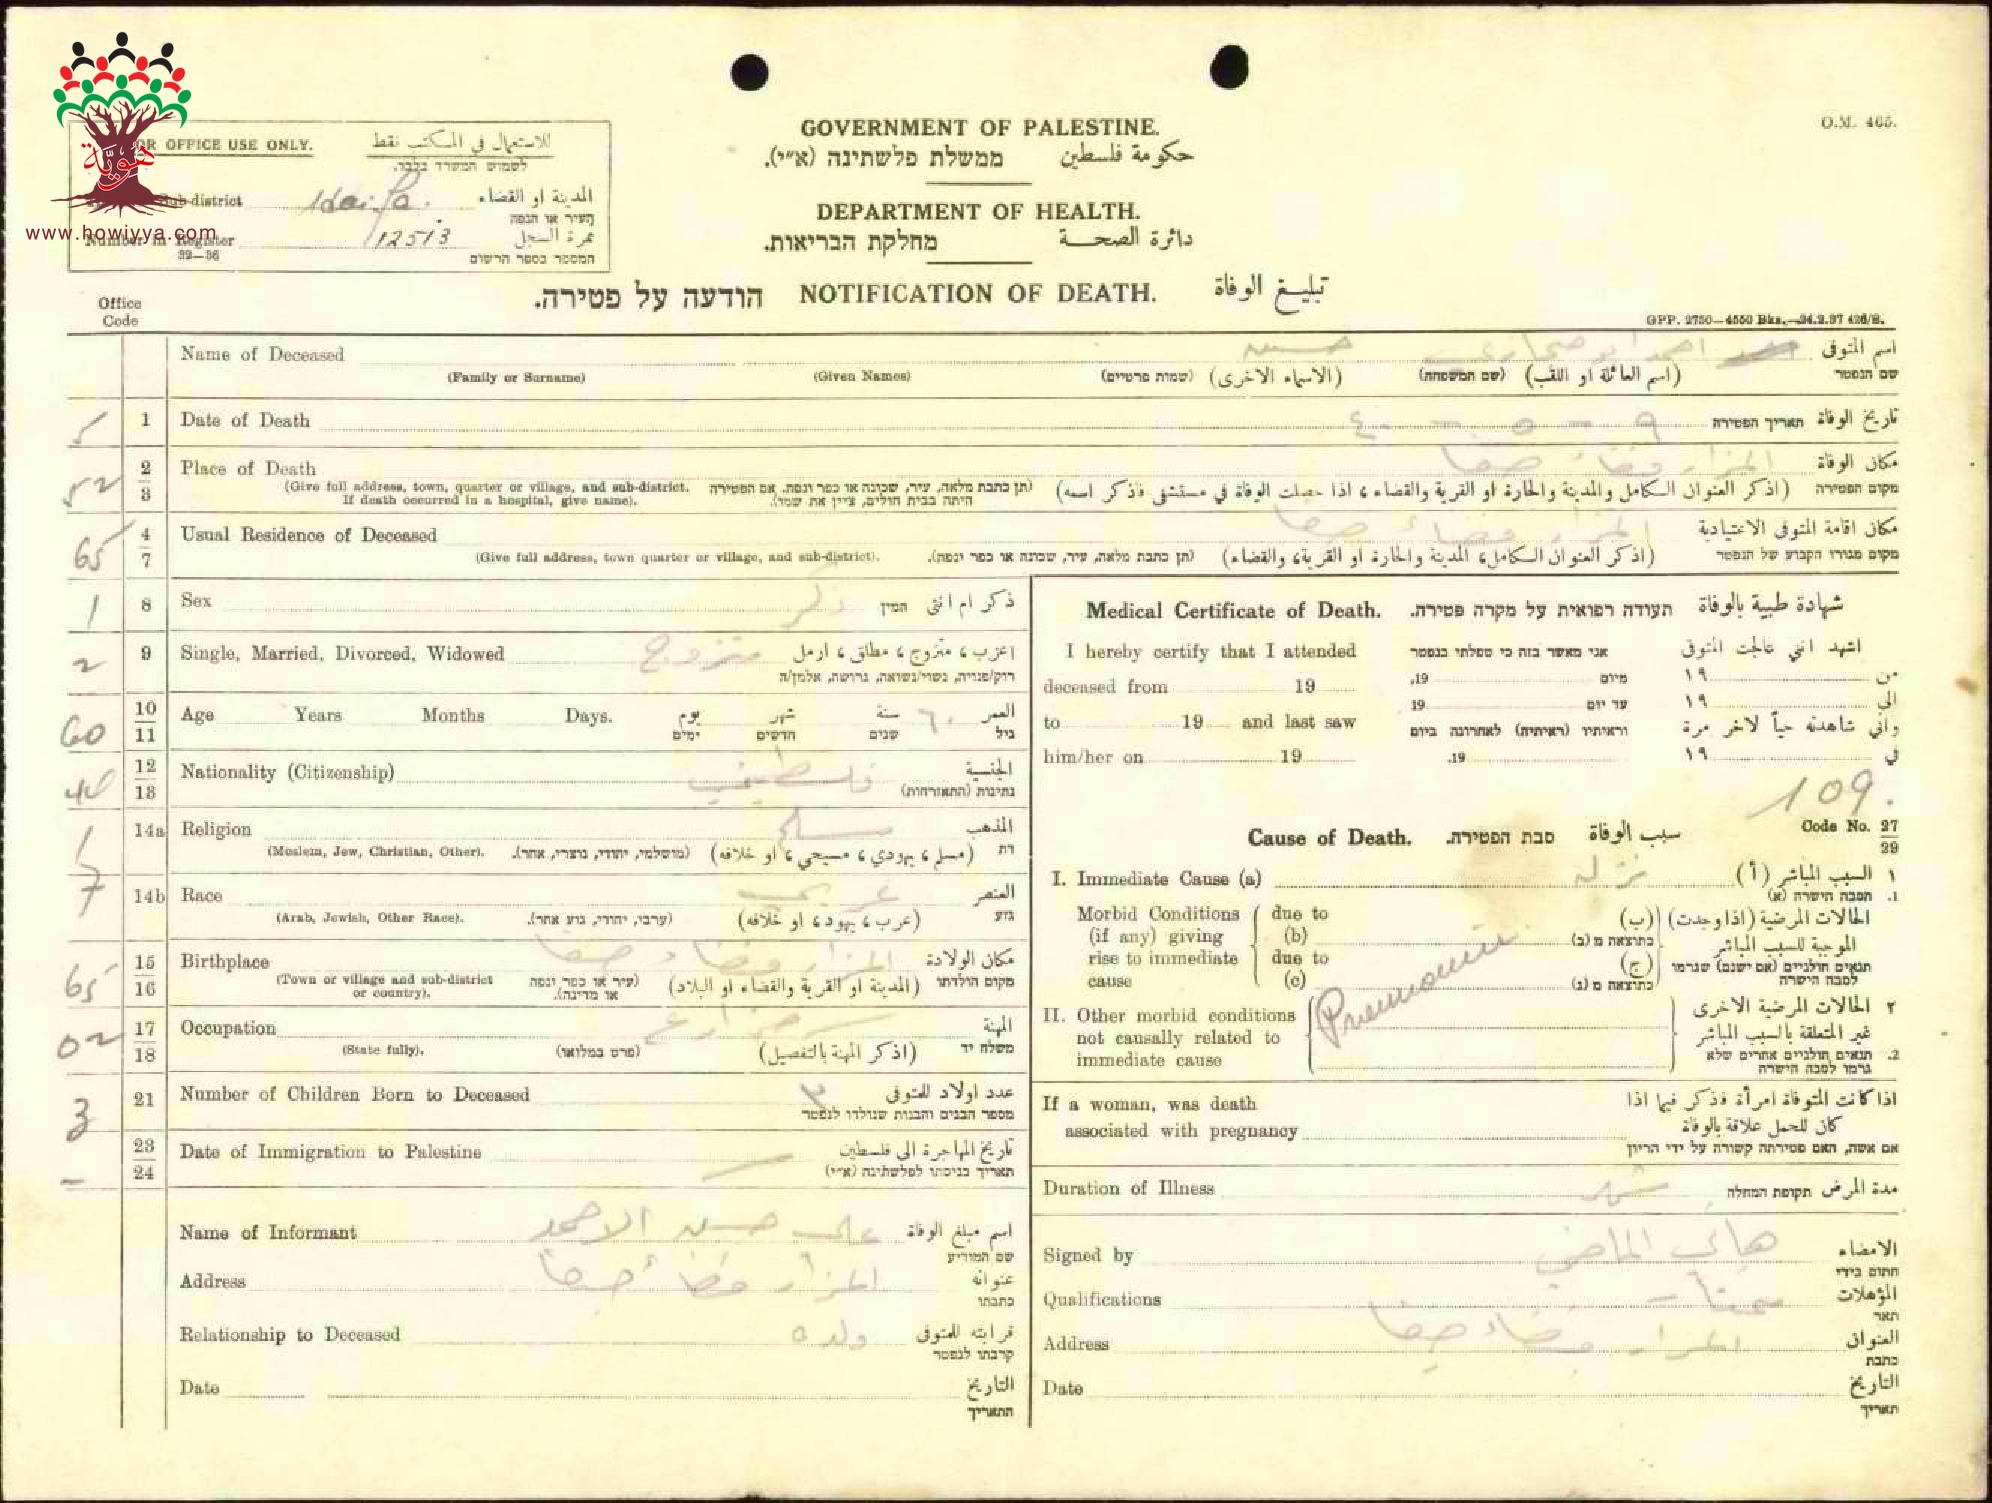 هويّة
www.howiyya.com
FOR OFFICE USE ONLY. للاستعمال في المكتب نقط
לשמוש המשרד בלבד.
Sub-district Haifa. المدينة او القضاء
העיר או הנפה
Number in Register 12513 نمرة السجل
32—36 המספר בספר הרשום
O.M. 465.
GOVERNMENT OF PALESTINE.
ממשלת פלשתינה (א״י). حكومة فلسطين
DEPARTMENT OF HEALTH.
מחלקת הבריאות. دائرة الصحة
הודעה על פטירה. NOTIFICATION OF DEATH. تبليغ الوفاة
Office
Code
GPP. 2750—4550 Bks.—24.2.37 426/S.
Name of Deceased حسين احمد ابو اسم المتوفى
(Family or Surname) (Given Names) (שמות פרטיים) (الاسماء الاخرى) (שם המשפחה) (اسم العائلة او اللقب) שם הנפטר
5 1 Date of Death ٩ - ٥ - ٤٠ תאריך הפטירה تاريخ الوفاة
52 2 3 Place of Death المزار قضاء حيفا مكان الوفاة
(Give full address, town, quarter or village, and sub-district. If death occurred in a hospital, give name). (תן כתבת מלאה, עיר, שכונה או כפר ונפה. אם הפטירה היתה בבית חולים, ציין את שמו). (اذكر العنوان الكامل والمدينة والحارة او القرية والقضاء، اذا حصلت الوفاة في مستشفى فاذكر اسمه) מקום הפטירה
65 4 7 Usual Residence of Deceased المزار قضاء حيفا مكان اقامة المتوفى الاعتيادية
(Give full address, town quarter or village, and sub-district). (תן כתבת מלאה, עיר, שכונה או כפר ונפה). (اذكر العنوان الكامل، المدينة والحارة او القرية، والقضاء) מקום מגוריו הקבוע של הנפטר
1 8 Sex ذكر המין ذكر ام انثى
2 9 Single, Married, Divorced, Widowed متزوج اعزب، متزوج، مطلق، ارمل
רוק/פנויה, נשוי/נשואה, גרושה, אלמן/ה
60 10 11 Age Years Months Days. يوم شهر سنة ٦٠ العمر
ימים חדשים שנים גיל
12 13 Nationality (Citizenship) فلسطيني الجنسية
נתינות (התאזרחות)
1 14a Religion مسلم المذهب
(Moslem, Jew, Christian, Other). (מושלמי, יהודי, נוצרי, אחר). (مسلم، يهودي، مسيحي، او خلافه) דת
7 14b Race عربي العنصر
(Arab, Jewish, Other Race). (ערבי, יהודי, גזע אחר). (عرب، يهود، او خلافه) גזע
65 15 16 Birthplace المزار قضاء حيفا مكان الولادة
(Town or village and sub-district or country). (עיר או כפר ונפה או מדינה). (المدينة او القرية والقضاء او البلاد) מקום הולדתו
02 17 18 Occupation مزارع المهنة
(State fully). (פרט במלואו) (اذكر المهنة بالتفصيل) משלח יד
3 21 Number of Children Born to Deceased ٣ عدد اولاد المتوفى
מספר הבנים והבנות שנולדו לנפטר
– 23 24 Date of Immigration to Palestine تاريخ المهاجرة الى فلسطين
תאריך כניסתו לפלשתינה (א״י)
Name of Informant علي حسين الاحمد اسم مبلغ الوفاة
שם המודיע
Address المزار قضاء حيفا عنوانه
כתבתו
Relationship to Deceased ولده قرابته للمتوفى
קרבתו לנפטר
Date التاريخ
התאריך
Medical Certificate of Death. תעודה רפואית על מקרה פטירה. شهادة طبية بالوفاة
I hereby certify that I attended אני מאשר בזה כי טפלתי בנפטר اشهد انني عالجت المتوفى
deceased from 19 מיום 19, من ١٩
to 19 and last saw עד יום 19 الى ١٩
וראיתיו (ראיתיה) לאחרונה ביום واني شاهدته حياً لاخر مرة
him/her on 19 19. في ١٩
109.
Code No. 27 29
Cause of Death. סבת הפטירה. سبب الوفاة
I. Immediate Cause (a) نزله ١ السبب المباشر (أ)
1. הסבה הישרה (א)
Morbid Conditions (if any) giving rise to immediate cause due to (b) due to (c) الحالات المرضية (اذا وجدت) الموجبة للسبب المباشر (ب) (ج)
כתוצאה מ (ב) תנאים חולניים (אם ישנם) שגרמו לסבה הישרה כתוצאה מ (ג)
Pneumonia
II. Other morbid conditions not causally related to immediate cause ٢ الحالات المرضية الاخرى غير المتعلقة بالسبب المباشر
2. תנאים חולניים אחרים שלא גרמו לסבה הישרה
If a woman, was death associated with pregnancy اذا كانت المتوفاة امرأة فذكر فيما اذا كان للحمل علاقة بالوفاة
אם אשה, האם פטירתה קשורה על ידי הריון
Duration of Illness תקופת המחלה مدة المرض
Signed by هاني الماضي الامضاء
חתום בידי
Qualifications المؤهلات
תאר
Address المزار قضاء حيفا العنوان
כתבת
Date التاريخ
תאריך